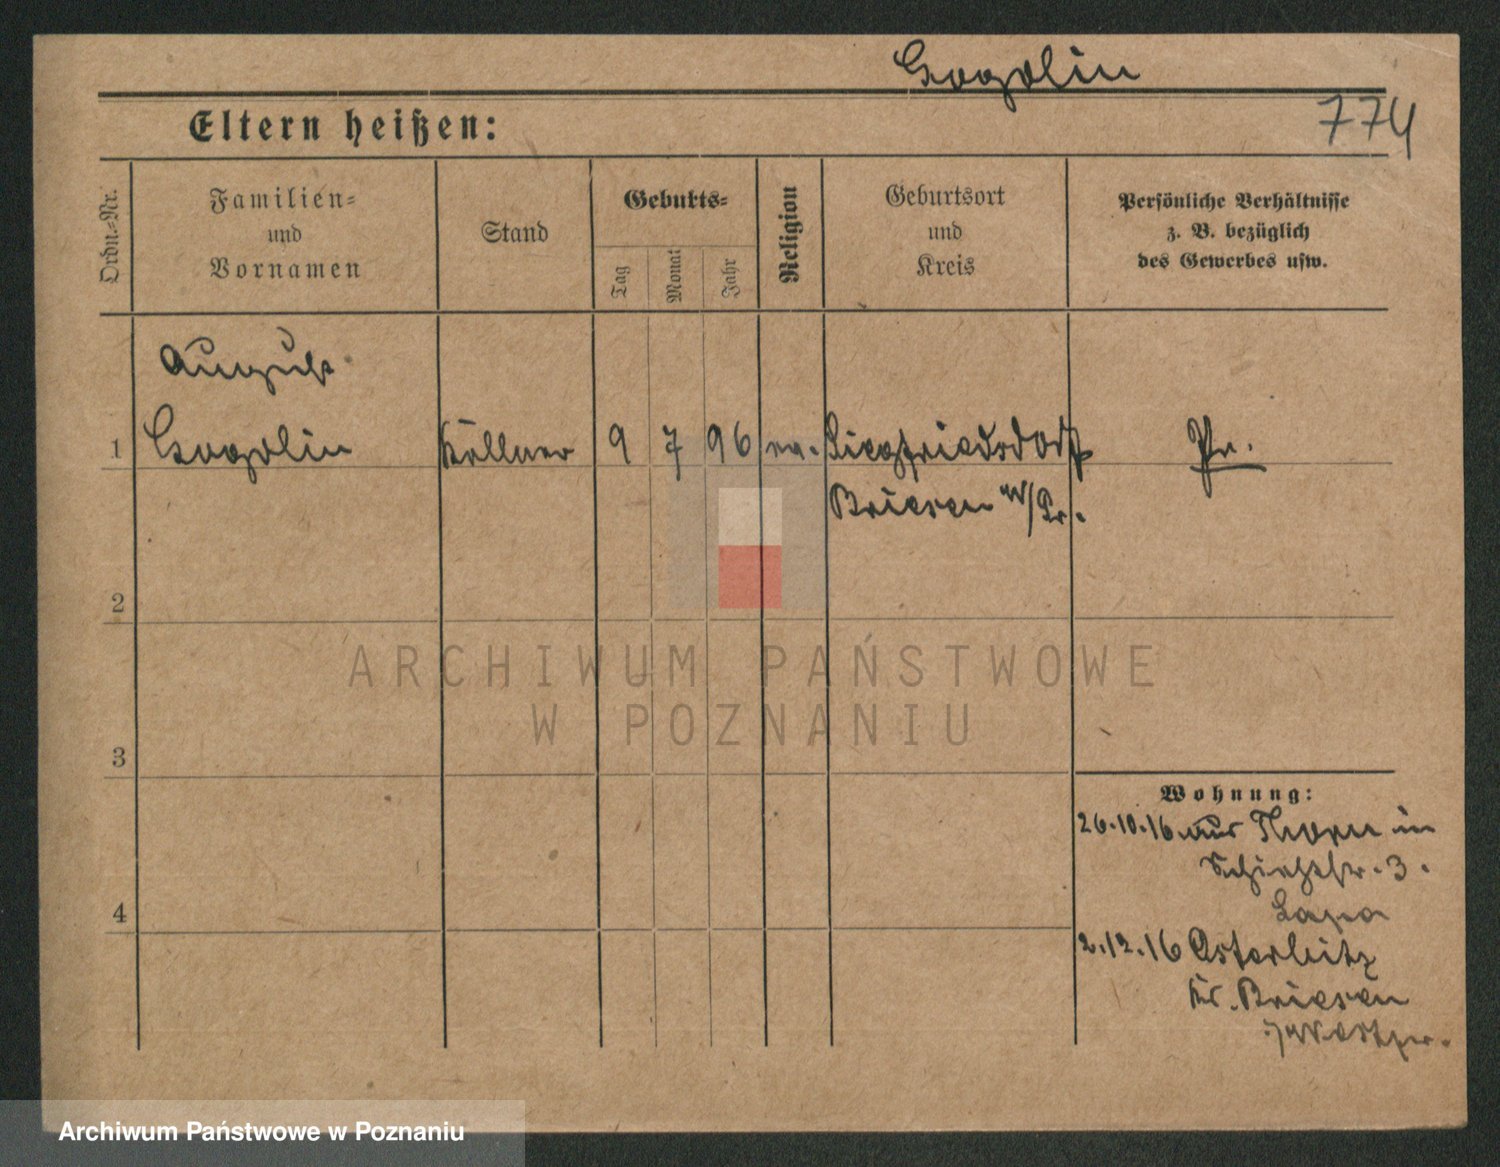 Gogolin
774
Eltern heißen:
Ordn.-Nr.
Familien-
und
Vornamen
Stand
Geburts-
Tag
Monat
Jahr
Religion
Geburtsort
und
Kreis
Persönliche Verhältnisse
z. B. bezüglich
des Gewerbes usw.
August
1 Gogolin Kellner 9 7 96 ev. Siegfriedsdorf Pr.
Briesen W/Pr.
2
ARCHIWUM PAŃSTWOWE
W POZNANIU
3
Wohnung:
26.10.16 aus Thorn in
Schießstr. 3.
4
2.12.16 Osterbitz
Kr. Briesen
Westpr.
Archiwum Państwowe w Poznaniu